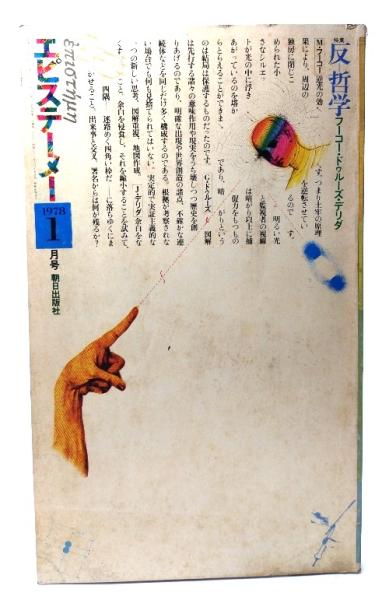 特集
反哲学
フーコー・ドゥルーズ・デリダ
M・フーコー 逆光の効
果により、周辺の
独房に閉じこ
められた小
さなシルエ
ットが光の中に浮き
あがっているのを塔か
らとらえることができま
のは結局は保護するものだったのです。G・ドゥルーズ
す。つまり土牢の原理
を逆転させてい
るので
す。
明るい光
と監視者の視線
は暗がり以上に捕
捉力をもつもの
であり、暗
がりという
図解
は先行する諸々の意味作用や現実をうち壊しつつ歴史を創
りあげるのであり、明確な出現や世界創造の諸点、不確かな連
続体などを同じだけ多く構成するのである。根拠が考察されな
い場合でも何も見捨てられてはいない。実定的で実証主義的な
一つの新しい思考。図解重視、地図作成。J・デリダ 余白をな
くすこと、余白を侵食し、それを縮小することを試みて、
四隅
迷路めく四角い枠だ
に落ちゆくにま
かせること、出来事とを又、署名からは何が残るか?
ἐπιστήμη
エピステーメー
1978
1
月号
朝日出版社